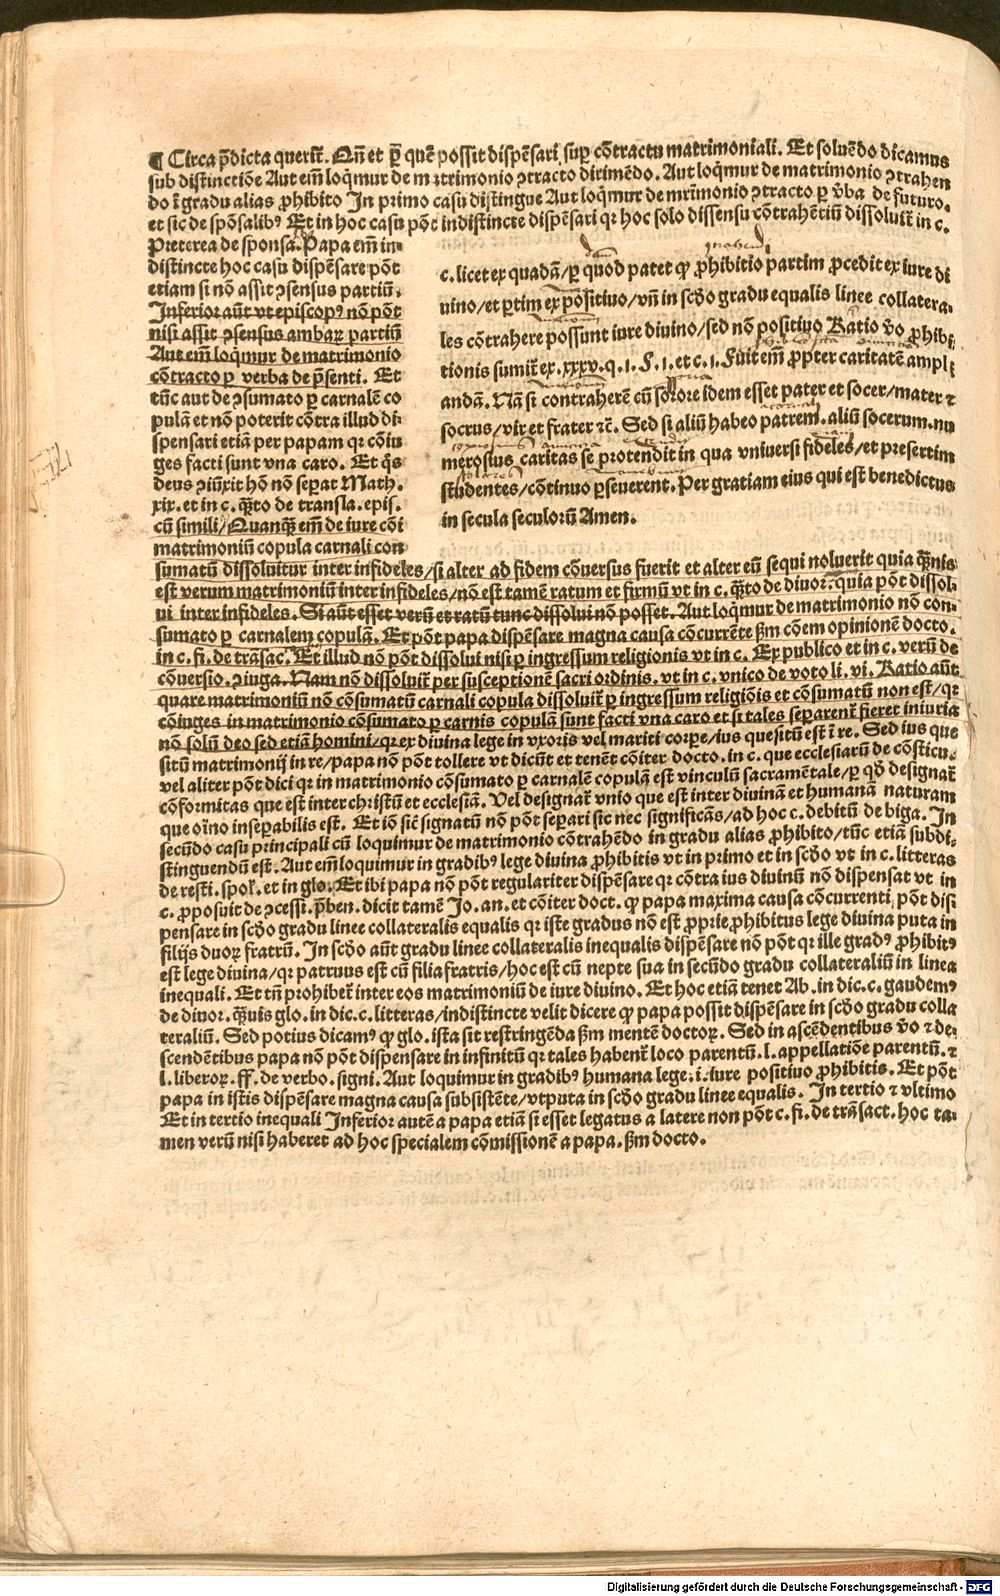 ¶ Circa p̄dicta querit᷑. Qn̄ et ꝑ quē possit dispēsari suꝑ cōtractu matrimoniali. Et soluēdo dicamus
sub distinctiōe Aut em̄ loq̄mur de matrimonio ꝯtracto dirimēdo. Aut loq̄mur de matrimonio ꝯtrahen
do ī gradu alias ꝓhibito In primo casu distingue Aut loq̄mur de mr̄imonio ꝯtracto ꝑ v̄ba de futuro.
et sic de spōsalibꝰ Et in hoc casu pōt indistincte dispēsari qꝛ hoc solo dissensu cōtrahētiū dissoluit᷑ in c.
Preterea de sponsa. Papa em̄ in⸗
distincte hoc casu dispēsare pōt
etiam si nō assit ꝯsensus partiū.
Inferior aūt vt episcopꝰ nō pōt
nisi assit ꝯsensus ambaꝝ partiū
Aut em̄ loq̄mur de matrimonio
cōtracto ꝑ verba de p̄senti. Et
tūc aut de ꝯsumato ꝑ carnalē co
pulā et nō poterit cōtra illud di⸗
spensari etiā per papam qꝛ cōiu
ges facti sunt vna caro. Et q̄s
deus ꝯiūxit hō nō seꝑat Math.
xix. et in c. q̄to de transla. epis.
cū simili/ Quanq̄ em̄ de iure cōi
matrimoniū copula carnali con
c. licet ex quadā/ ꝑ quod patet ꝙ ꝓhibitio partim ꝓcedit ex iure di
uino/ et ꝑtim ex positiuo/ vn̄ in scḋo gradu equalis linee collatera⸗
les cōtrahere possunt iure diuino/ sed nō positiuo Ratio v̄o ꝓhibi
tionis sumit᷑ ex. xxxv. q. i. §. i. et c. i. Fuit em̄ ꝓpter caritatē ampli
andā. Nā si contraherē cū sorore idem esset pater et socer/ mater ⁊
socrus/ vir et frater ⁊c̄. Sed si aliū habeo patrem. aliū socerum. nu
merosius caritas se protendit in qua vniuersi fideles/ et presertim
studentes/ cōtinuo ꝑseuerent. Per gratiam eius qui est benedictus
in secula seculorū Amen.
sumatū dissoluitur inter infideles/ si alter ad fidem cōuersus fuerit et alter eū sequi noluerit quia q̄nis
est verum matrimoniū inter infideles/ nō est tamē ratum et firmū vt in c. q̄to de diuor. quia pōt dissol⸗
ui inter infideles. Si aūt esset verū et ratū tunc dissolui nō posset. Aut loq̄mur de matrimonio nō con⸗
sumato ꝑ carnalem copulā. Et pōt papa dispēsare magna causa cōcurrēte ẜm cōem opinionē docto.
in c. fi. de trāsac. Et illud nō pōt dissolui nisi ꝑ ingressum religionis vt in c. Ex publico et in c. verū de
cōuersio. ꝯiuga. Nam nō dissoluit᷑ per susceptionē sacri ordinis. vt in c. vnico de voto li. vi. Ratio aūt
quare matrimoniū nō cōsumatū carnali copula dissoluit᷑ ꝑ ingressum religiōis et cōsumatū non est/ qꝛ
cōiuges in matrimonio cōsumato ꝑ carnis copulā sunt facti vna caro et si tales separent᷑ fieret iniuria
nō solū deo sed etiā homini/ qꝛ ex divina lege in vxoris vel mariti corꝑe/ ius quesitū est ī re. Sed ius que
situ matrimonij in re/ papa nō pōt tollere vt dicūt et tenēt cōiter docto. in c. que ecclesiarū de cōsticu⸗
vel aliter pōt dici qꝛ in matrimonio cōsumato ꝑ carnalē copulā est vinculū sacramētale/ ꝑ qḋ designat᷑
cōformitas que est inter christū et ecclesiā. Vel designat᷑ vnio que est inter diuinā et humanā naturam
que oīno inseꝑabilis est. Et iō sic̄ signatū nō pōt seꝑari sic nec significās/ ad hoc c. debitū de biga. In
secūdo casu principali cū loquimur de matrimonio cōtrahēdo in gradu alias ꝓhibito/ tūc etiā subdi⸗
stinguendū est. Aut em̄ loquimur in gradibꝰ lege diuina ꝓhibitis vt in primo et in scḋo vt in c. litteras
de resti. spol. et in glo. Et ibi papa nō pōt regulariter dispēsare qꝛ cōtra ius diuinū nō dispensat vt in
c. ꝓposuit de ꝯcessi. p̄ben. dicit tamē Jo. an. et cōiter doct. ꝙ papa maxima causa cōcurrenti pōt disi
pensare in scḋo gradu linee collateralis equalis qꝛ iste gradus nō est ꝓprie ꝓhibitus lege diuina puta in
filijs duoꝝ fratrū. In scḋo aūt gradu linee collateralis inequalis dispēsare nō pōt qꝛ ille gradꝰ ꝓhibitꝰ
est lege diuina/ qꝛ patruus est cū filia fratris/ hoc est cū nepte sua in secūdo gradu collateraliū in linea
inequali. Et tn̄ prohibet᷑ inter eos matrimoniū de iure diuino. Et hoc etiā tenet Ab. in dic. c. gaudemꝰ
de diuor. q̄uis glo. in dic. c. litteras/ indistincte velit dicere ꝙ papa possit dispēsare in scḋo gradu colla
teraliū. Sed potius dicamꝰ ꝙ glo. ista sit restringēda ẜm mentē doctoꝝ. Sed in ascēdentibus v̄o ⁊ de⸗
scendētibus papa nō pōt dispensare in infinitū qꝛ tales habent᷑ loco parentū. l. appellatiōe parentū. ⁊
l. liberoꝝ. ff. de verbo. signi. Aut loquimur in gradibꝰ humana lege. i. iure positiuo ꝓhibitis. Et pōt
papa in istis dispēsare magna causa subsistēte/ vtputa in scḋo gradu linee equalis. In tertio ⁊ vltimo
Et in tertio inequali Inferior autē a papa etiā si esset legatus a latere non pōt c. fi. de trāsact. hoc ta⸗
men verū nisi haberet ad hoc specialem cōmissionē a papa. ẜm docto.
Digitalisierung gefördert durch die Deutsche Forschungsgemeinschaft - DFG